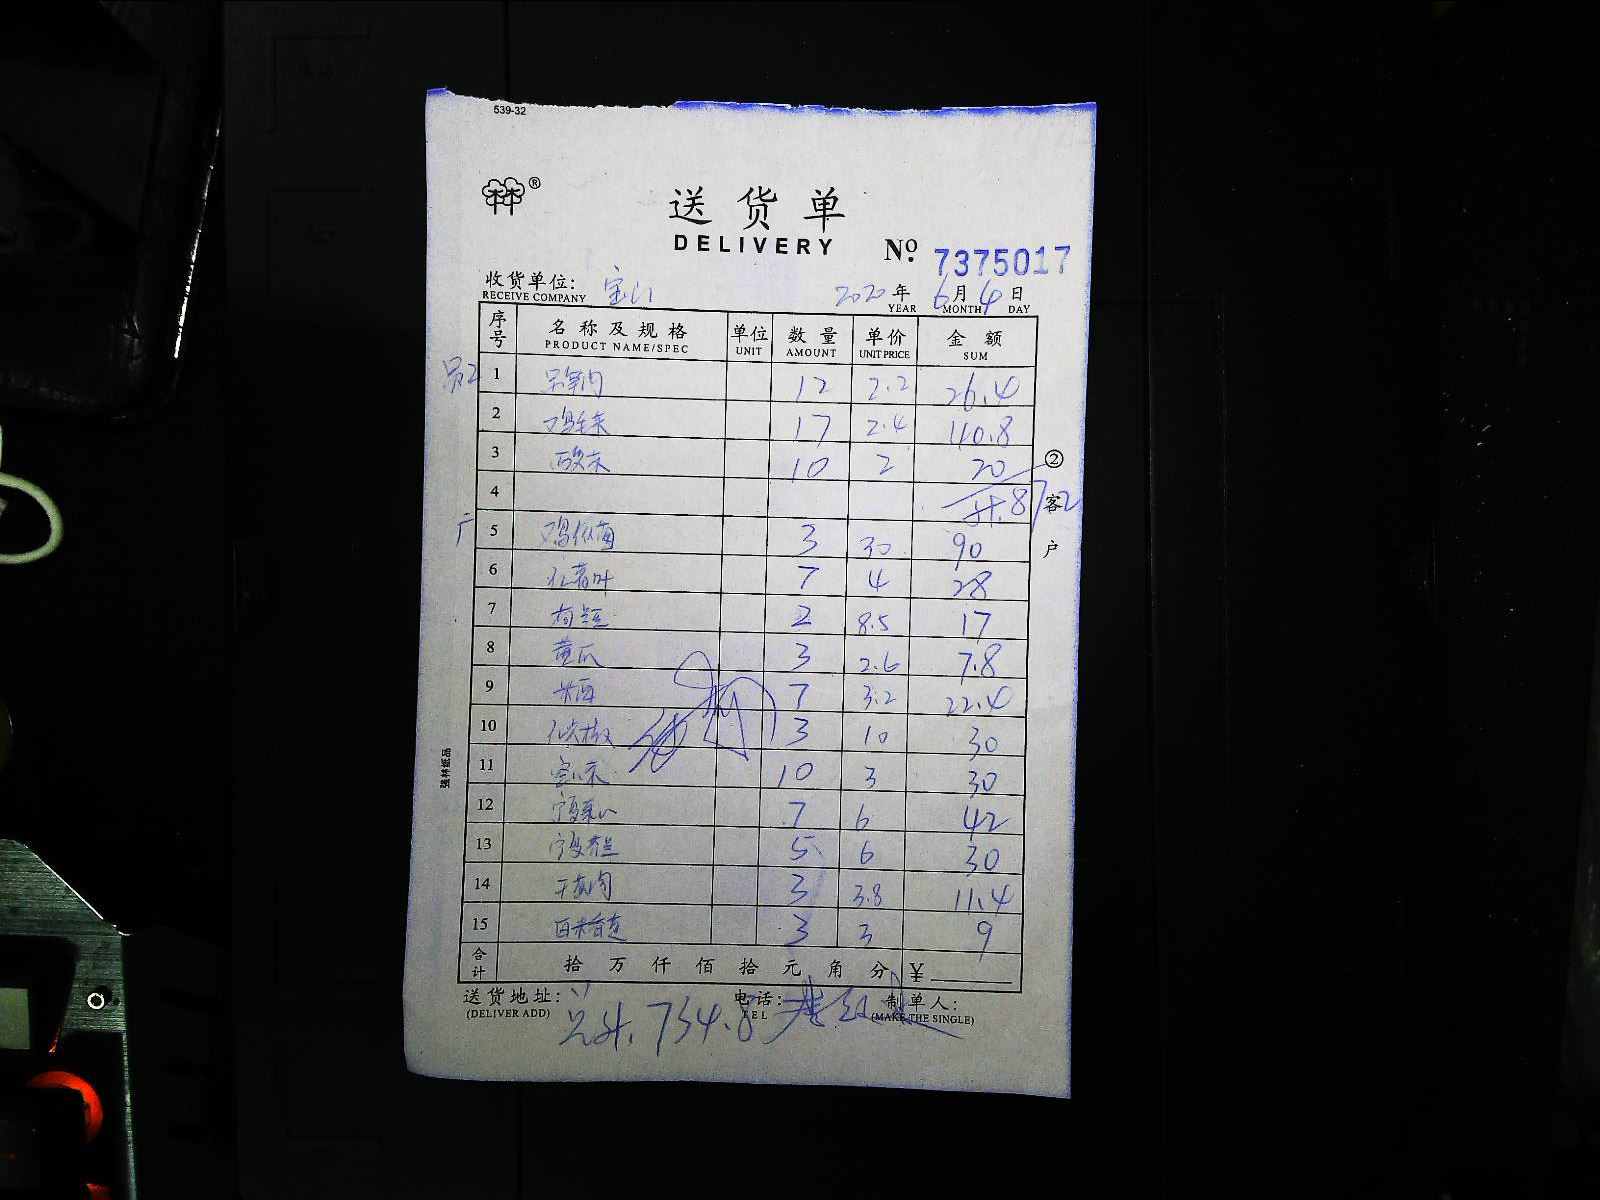 539-32
送货单
DELIVERY
№ 7375017
收货单位: 宝山 2020年6月4日
RECEIVE COMPANY YEAR MONTH DAY
序号 名称及规格 单位 数量 单价 金额
PRODUCT NAME/SPEC UNIT AMOUNT UNIT PRICE SUM
1 12 2.2 26.4
2 鸡毛菜 17 2.4 40.8
3 10 2 20
4 87.2
5 鸡枞菌 3 30 90
6 红薯叶 7 4 28
7 2 8.5 17
8 黄瓜 3 2.6 7.8
9 7 3.2 22.4
10 3 10 30
11 10 3 30
12 宁夏菜心 7 6 42
13 宁夏芥兰 5 6 30
14 3 3.8 11.4
15 3 3 9
合计 拾 万 仟 佰 拾 元 角 分 ¥
②客户
强林纸品
送货地址: 电话: 制单人:
(DELIVER ADD) TEL (MAKE THE SINGLE)
734.8